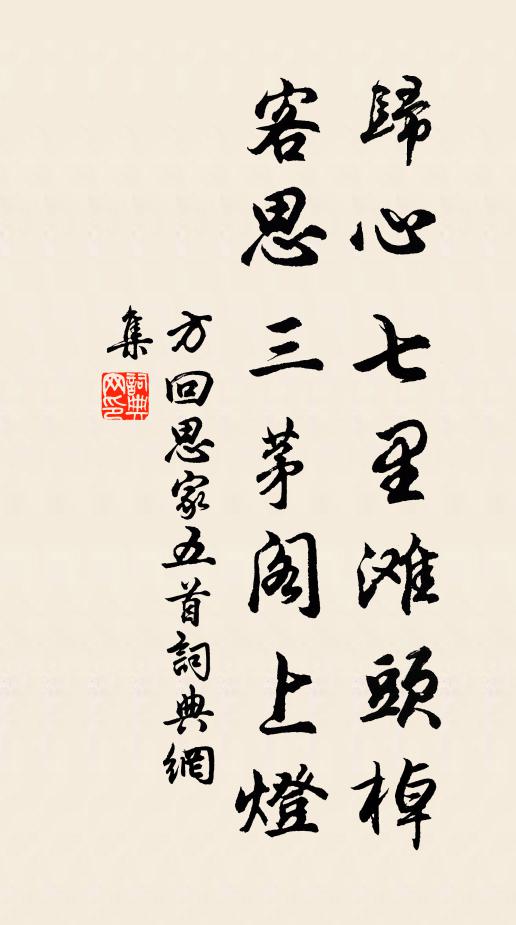 歸心七里滩頭棹
客思三茅阁上燈
方回思家五首詞典網
集
詞典
网印